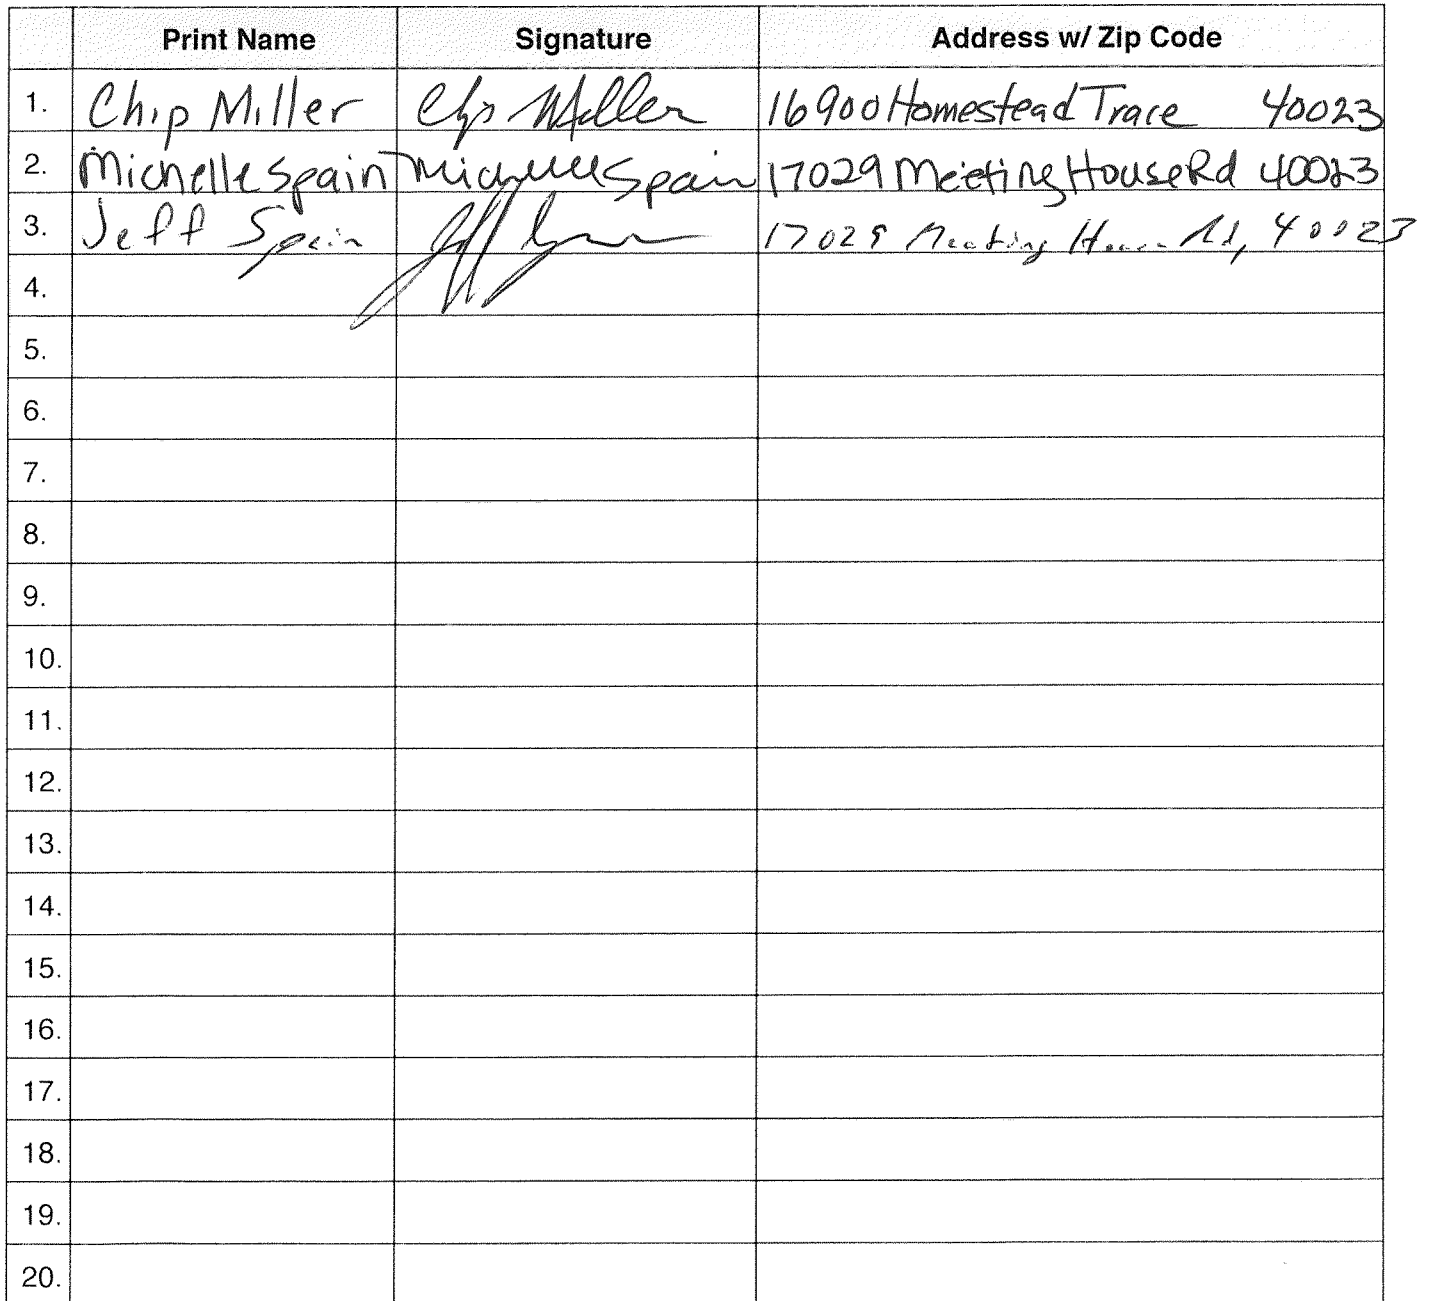 Print Name Signature Address w/ Zip Code
1. Chip Miller Chip Miller 16900 Homestead Trace 40023
2. Michelle Spain Michelle Spain 17029 Meeting House Rd 40023
3. Jeff Spain Jeff Spain 17029 Meeting House Rd, 40023
4.
5.
6.
7.
8.
9.
10.
11.
12.
13.
14.
15.
16.
17.
18.
19.
20.